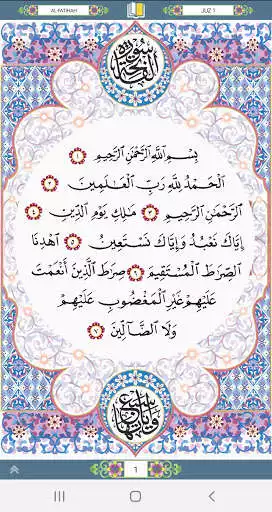 AL-FATIHAH
JUZ 1
سورة الفاتحة
بِسْمِ اللَّهِ الرَّحْمَٰنِ الرَّحِيمِ ١
الْحَمْدُ لِلَّهِ رَبِّ الْعَالَمِينَ ٢
الرَّحْمَٰنِ الرَّحِيمِ ٣ مَالِكِ يَوْمِ الدِّينِ ٤
إِيَّاكَ نَعْبُدُ وَإِيَّاكَ نَسْتَعِينُ ٥ اهْدِنَا
الصِّرَاطَ الْمُسْتَقِيمَ ٦ صِرَاطَ الَّذِينَ أَنْعَمْتَ
عَلَيْهِمْ غَيْرِ الْمَغْضُوبِ عَلَيْهِمْ
وَلَا الضَّالِّينَ ٧
1